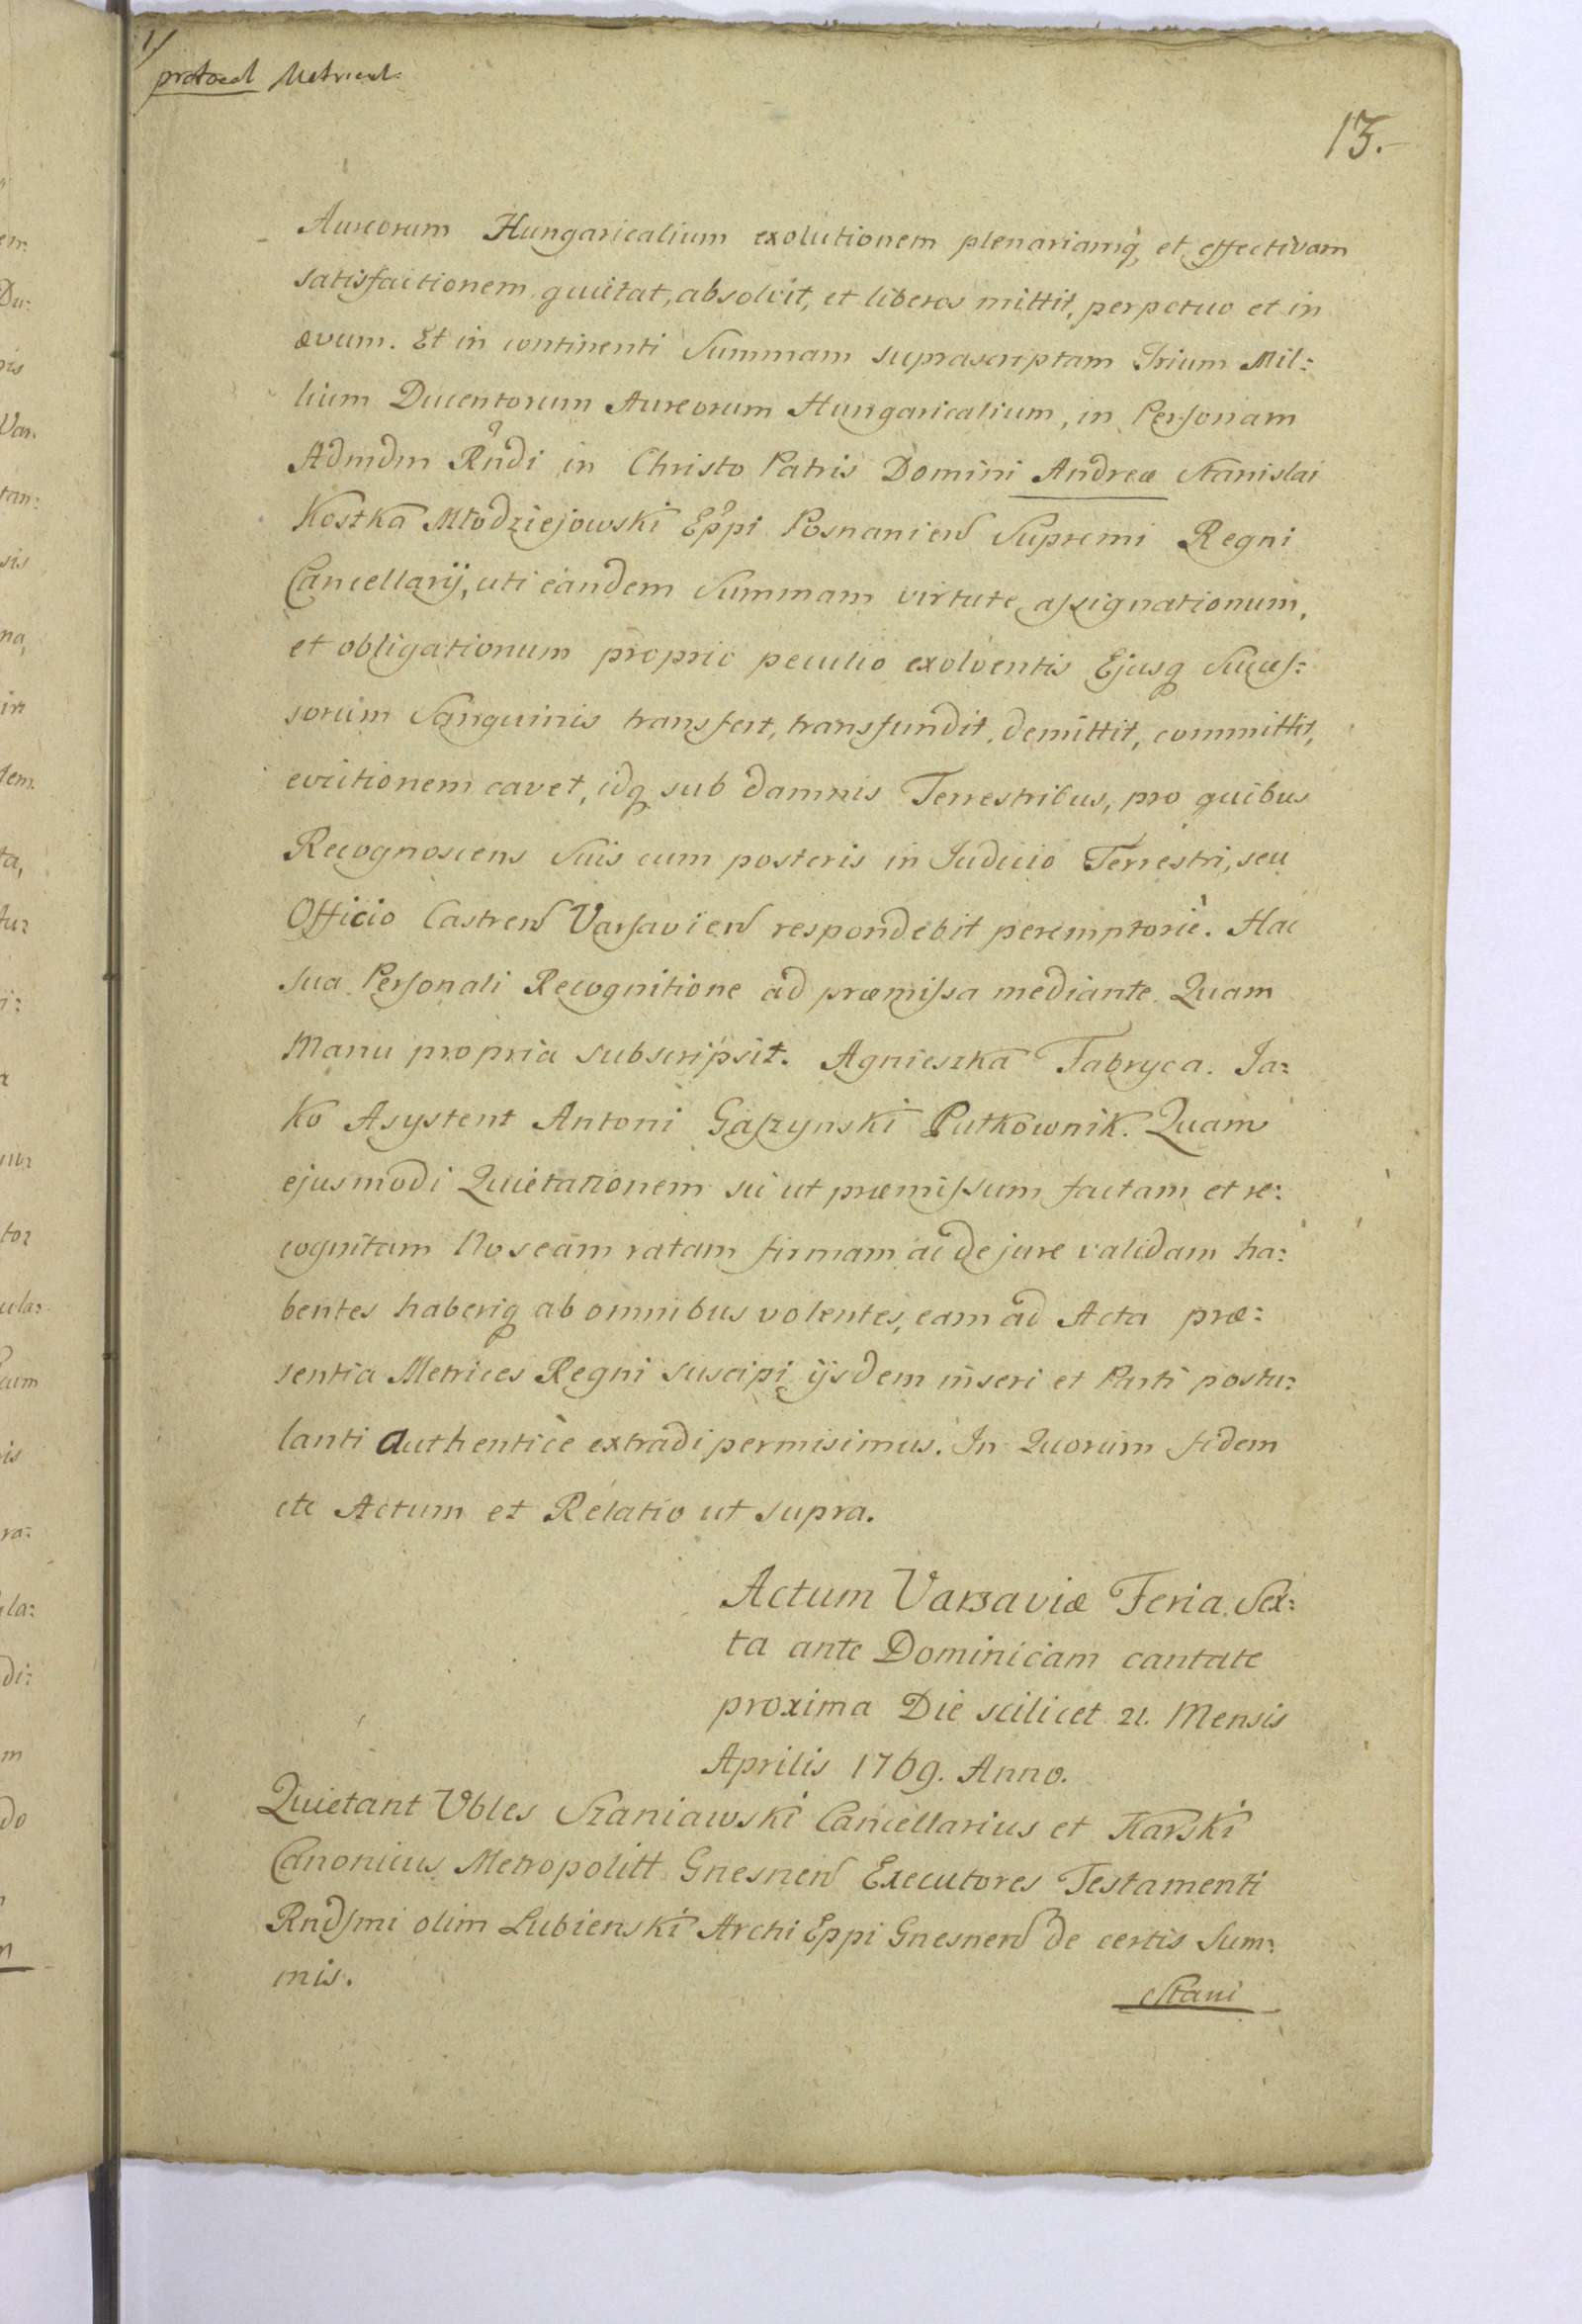 1/
protocol Metricul:
13.
Aureorum Hungaricalium exolutionem plenariamq̃ et effectivam
satisfactionem quietat, absolvit, et liberos mittit, perpetuo et in
ævum. Et in continenti Summam suprascriptam Trium Mil:
lium Ducentorum Aureorum Hungaricalium, in Personam
Admdm Rndi in Christo Patris Domini Andreæ Stanislai
Kostka Młodziejowski Eppi Posnanien Supremi Regni
Cancellarij, uti eandem Summam virtute assignationum,
et obligationum proprio peculio exolventis Ejusq Succes:
sorum Sanguinis transfert, transfundit, demittit, committit,
evictionem cavet, idq sub damnis Terrestribus, pro quibus
Recognoscens Suis cum posteris in Judicio Terrestri, seu
Officio Castren Varsavien respondebit peremptoriè. Hac
sua Personali Recognitione ad præmissa mediante Quam
Manu propria subscripsit. Agnieszka Fabryca. Ja:
ko Asystent Antoni Gaszynski Pułkownik. Quam
ejusmodi Quietationem sic ut præmissum factam et re:
cognitam Nos eam ratam firmam ac de jure validam ha:
bentes haberiq ab omnibus volentes, eam ad Acta præ:
sentia Metrices Regni suscipi ijsdem inseri et Parti postu:
lanti authenticè extradi permisimus. In Quorum fidem
etc Actum et Relatio ut supra.
Actum Varsaviæ Feria Sex:
ta ante Dominicam cantate
proxima Die scilicet 21. Mensis
Aprilis 1769. Anno.
Quietant Vbles Szaniawski Cancellarius et Karski
Canonicus Metropolitt Gnesnen Executores Testamenti
Rndsmi olim Lubienski Archi Eppi Gnesnen de certis Sum:
mis.
Stani